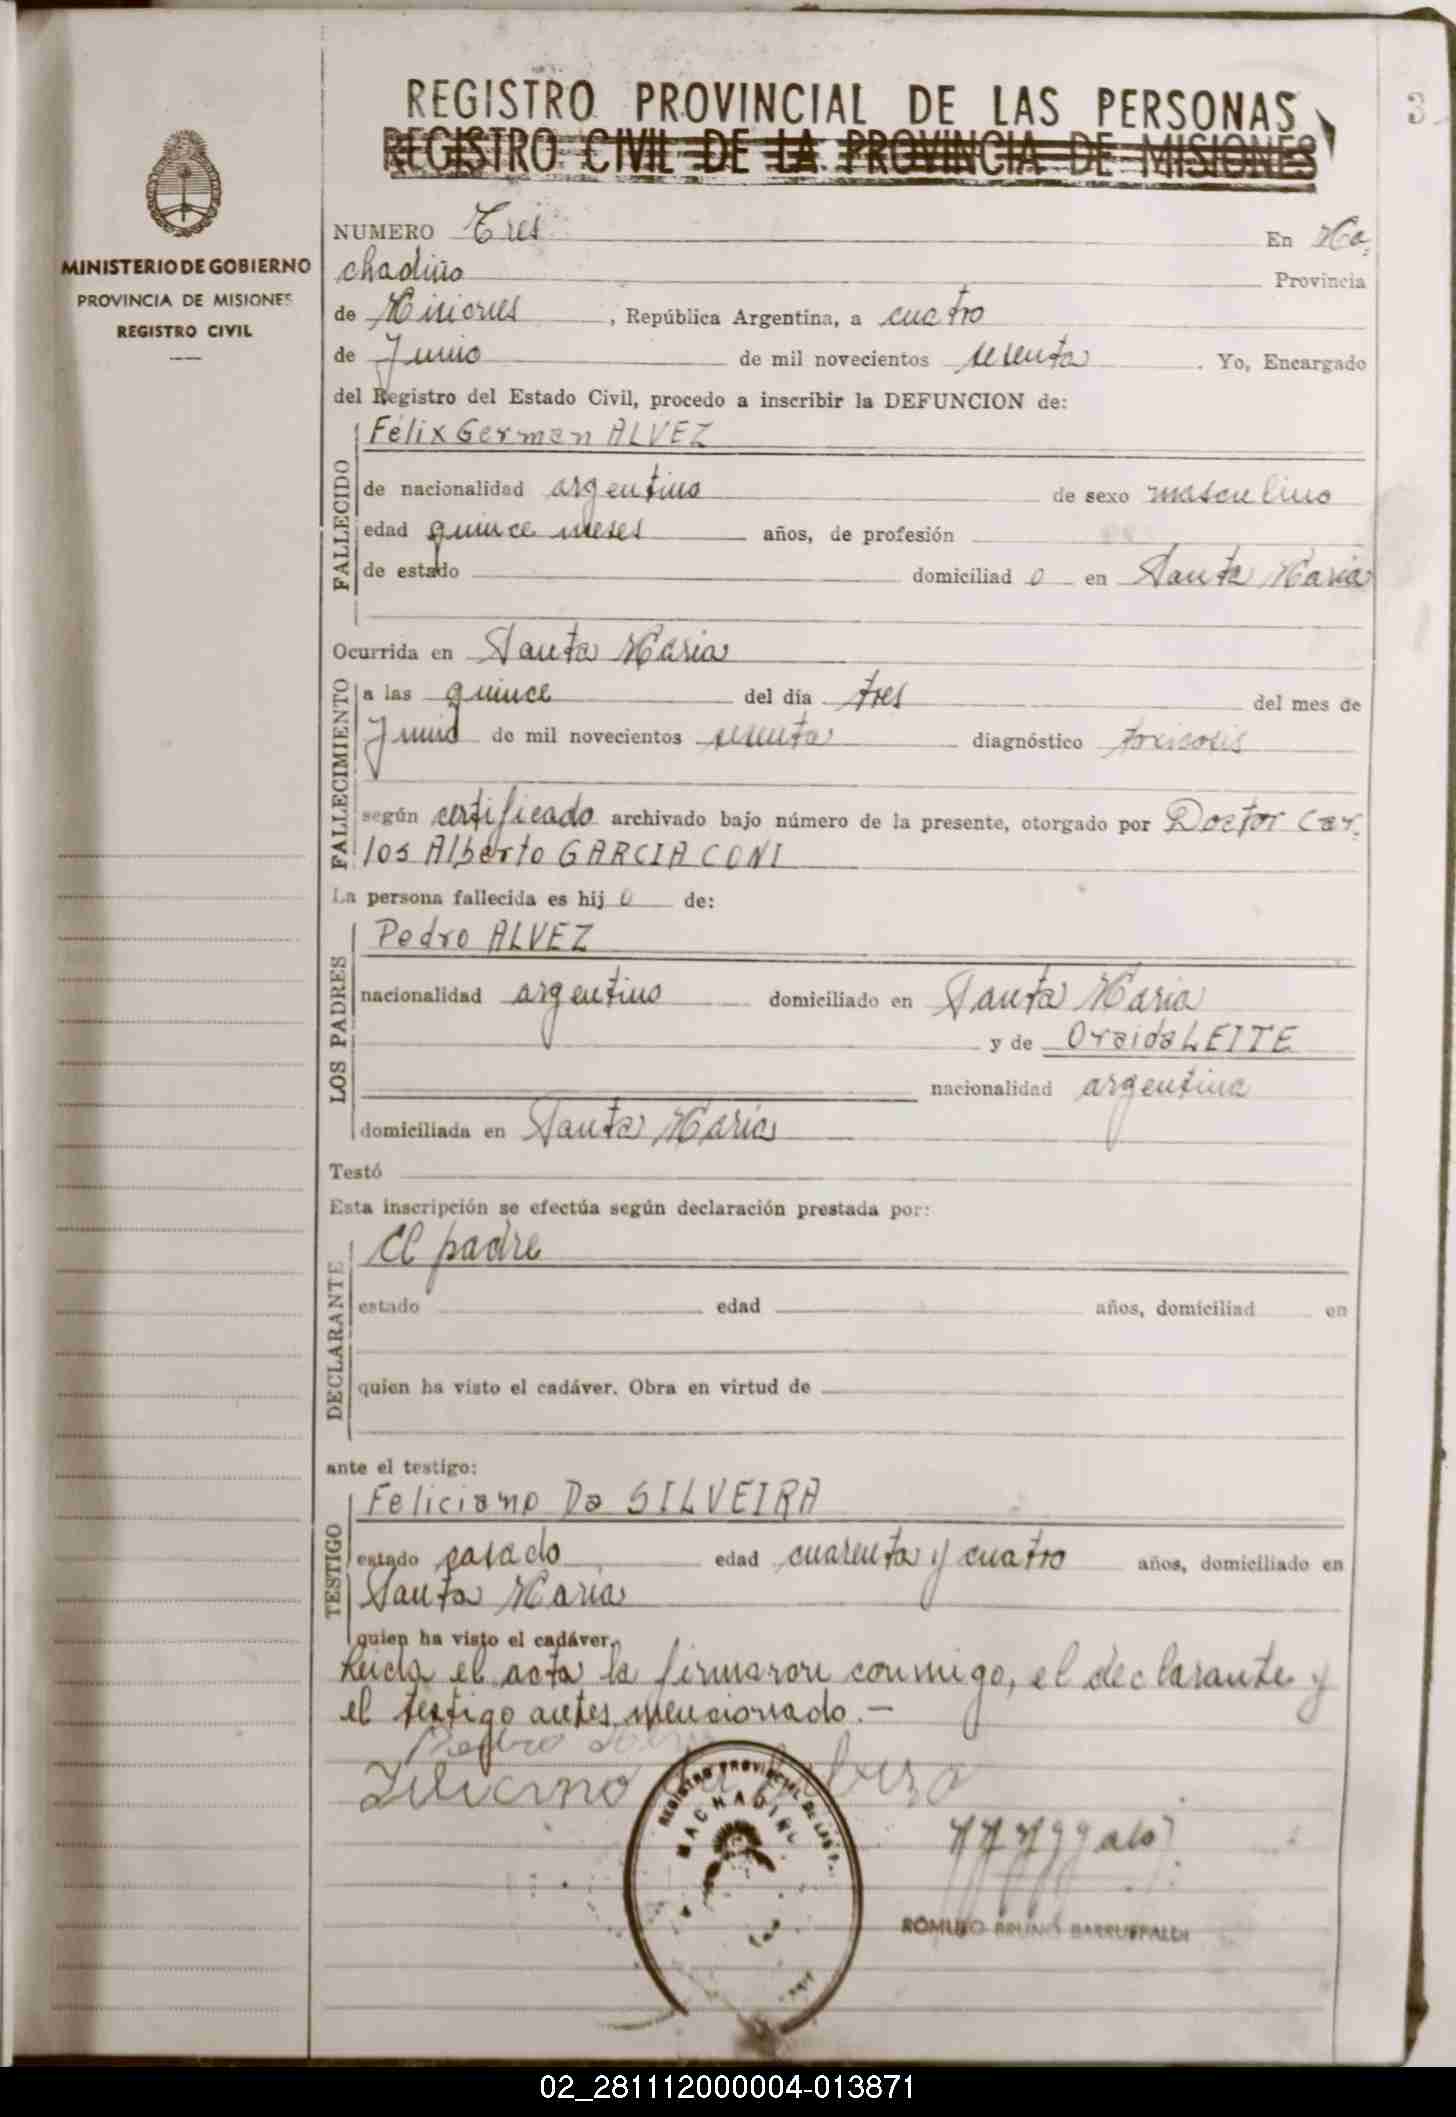 REGISTRO PROVINCIAL DE LAS PERSONAS
REGISTRO CIVIL DE LA PROVINCIA DE MISIONES
3
MINISTERIO DE GOBIERNO
PROVINCIA DE MISIONES
REGISTRO CIVIL
NUMERO Tres En Ma
chadiño Provincia
de Misiones, República Argentina, a cuatro
de Junio de mil novecientos sesenta. Yo, Encargado
del Registro del Estado Civil, procedo a inscribir la DEFUNCION de:
FALLECIDO
Félix German ALVEZ
de nacionalidad argentino de sexo masculino
edad quince meses años, de profesión
de estado domiciliad o en Santa Maria
Ocurrida en Santa Maria
FALLECIMIENTO
a las quince del día tres del mes de
Junio de mil novecientos sesenta diagnóstico toxicosis
según certificado archivado bajo número de la presente, otorgado por Doctor Car-
los Alberto GARCIA CONI
La persona fallecida es hij o de:
LOS PADRES
Pedro ALVEZ
nacionalidad argentino domiciliado en Santa Maria
y de Oraida LEITE
nacionalidad argentina
domiciliada en Santa Maria
Testó
Esta inscripción se efectúa según declaración prestada por:
DECLARANTE
El padre
estado edad años, domiciliad en
quien ha visto el cadáver. Obra en virtud de
ante el testigo:
TESTIGO
Feliciano Da SILVEIRA
estado casado edad cuarenta y cuatro años, domiciliado en
Santa Maria
quien ha visto el cadáver.
Leida el acta la firmaron conmigo, el declarante y
el testigo antes mencionado.—
Pedro
REGISTRO PROVINCIAL DE LAS P
MACHADIÑO
ROMULO BRUNO BARRUFFALDI
02_281112000004-013871